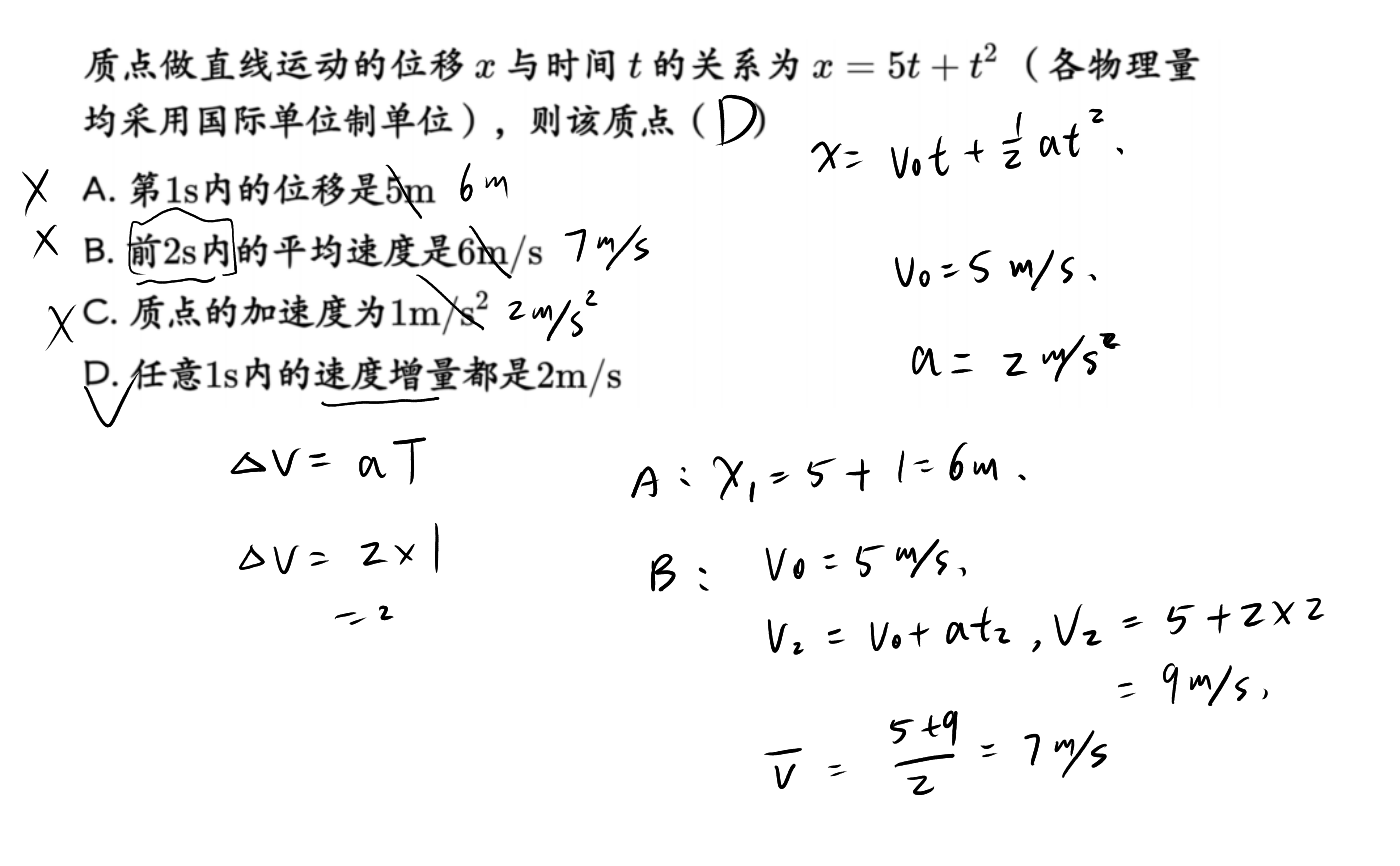 质点做直线运动的位移 x 与时间 t 的关系为 x = 5t + t² （各物理量
均采用国际单位制单位），则该质点（D）
x = v₀t + ½ at².
X A. 第1s内的位移是5m 6m
X B. 前2s内的平均速度是6m/s 7m/s
v₀ = 5 m/s.
X C. 质点的加速度为1m/s² 2m/s²
a = 2 m/s²
✓ D. 任意1s内的速度增量都是2m/s
△v = aT
△v = 2×1
= 2
A: x₁ = 5 + 1 = 6m.
B: v₀ = 5 m/s,
v₂ = v₀ + at₂, v₂ = 5 + 2×2
= 9m/s,
v̅ = (5+9)/2 = 7m/s